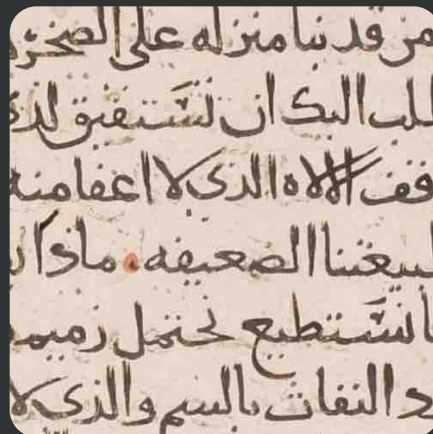 من قد بنا منزله على الصخره
طلب اليك ان نستفيق لذ
قف الالاه الذي لا اعفا منه
طبيعتنا الضعيفه. ماذا
نستطيع نحتمل رميم
النفاث بالسم والذي لا